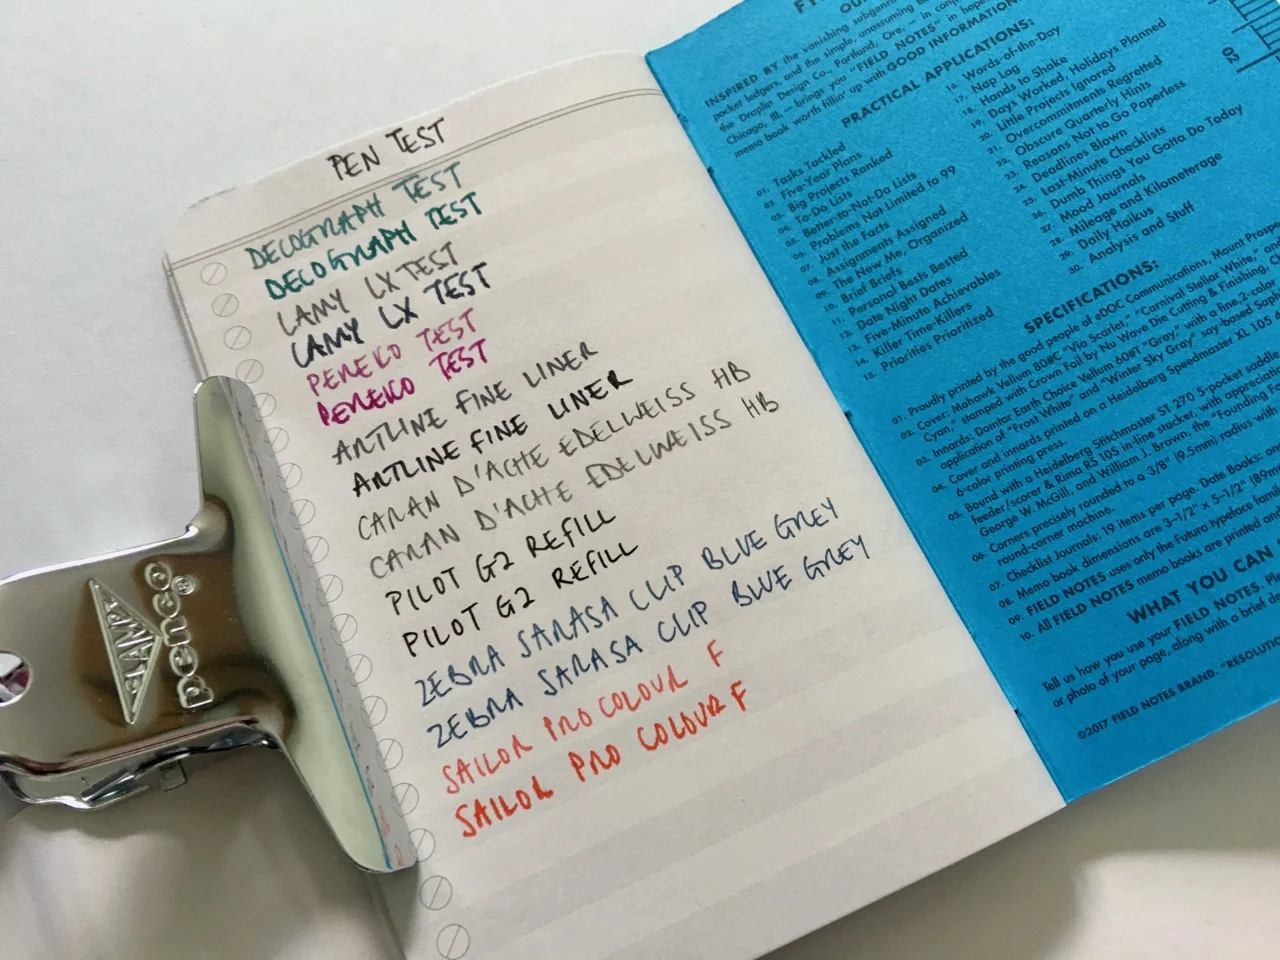 PEN TEST
DECOGRAPH TEST
DECOGRAPH TEST
LAMY LX TEST
LAMY LX TEST
PENEKO TEST
PENEKO TEST
ARTLINE FINE LINER
ARTLINE FINE LINER
CARAN D'ACHE EDELWEISS HB
CARAN D'ACHE EDELWEISS HB
PILOT G2 REFILL
PILOT G2 REFILL
ZEBRA SARASA CLIP BLUE GREY
ZEBRA SARASA CLIP BLUE GREY
SAILOR PRO COLOUR F
SAILOR PRO COLOUR F
CLAMPY
Penco®
INSPIRED BY the vanishing subgenre
pocket ledgers, and the simple, unassuming
the Draplin Design Co., Portland, Ore. — in
Chicago, Ill, — brings you "FIELD NOTES" in hopes
memo book worth fillin' up with GOOD INFORMATION
PRACTICAL APPLICATIONS:
01. Tasks Tackled
02. Five-Year Plans
03. Big Projects Ranked
04. To-Do Lists
05. Better-to-Not-Do Lists
06. Problems Not Limited to 99
07. Just the Facts
08. Assignments Assigned
09. The New Me, Organized
10. Brief Briefs
11. Personal Bests Bested
12. Date Night Dates
13. Five-Minute Achievables
14. Killer Time-Killers
15. Priorities Prioritized
16. Words-of-the-Day
17. Nap Log
18. Hands to Shake
19. Days Worked, Holidays Planned
20. Little Projects Ignored
21. Overcommitments Regretted
22. Obscure Quarterly Hints
23. Reasons Not to Go Paperless
24. Deadlines Blown
25. Last-Minute Checklists
26. Dumb Things You Gotta Do Today
27. Mood Journals
28. Mileage and Kilometerage
29. Daily Haikus
30. Analysis and Stuff
SPECIFICATIONS:
01. Proudly printed by the good people of eDOC Communications, Mount Prospe
02. Cover: Mohawk Vellum 80#C "Via Scarlet," "Carnival Stellar White," and
Cyan," stamped with Crown Foil by Nu Wave Die Cutting & Finishing,
03. Innards: Domtar Earth Choice Vellum 60#T "Gray," with a fine 2-color
application of "Frost White" and "Winter Sky Gray" soy-based
04. Cover and innards printed on a Heidelberg Speedmaster XL 105
6-color printing press.
05. Bound with a Heidelberg Stitchmaster ST 270 5-pocket saddle
feeder/scorer & Rima RS 105 in-line stacker, with appreciation
George W. McGill, and William J. Brown, the "Founding
06. Corners precisely rounded to a 3/8" (9.5mm) radius with
round-corner machine.
07. Checklist Journals: 19 items per page. Date Books: one
08. Memo book dimensions are 3-1/2" × 5-1/2" (89m
09. FIELD NOTES uses only the Futura typeface
10. All FIELD NOTES memo books are printed and
WHAT YOU CAN
Tell us how you use your FIELD NOTES. Please
or photo of your page, along with a brief
©2017 FIELD NOTES BRAND. "RESOLUTION